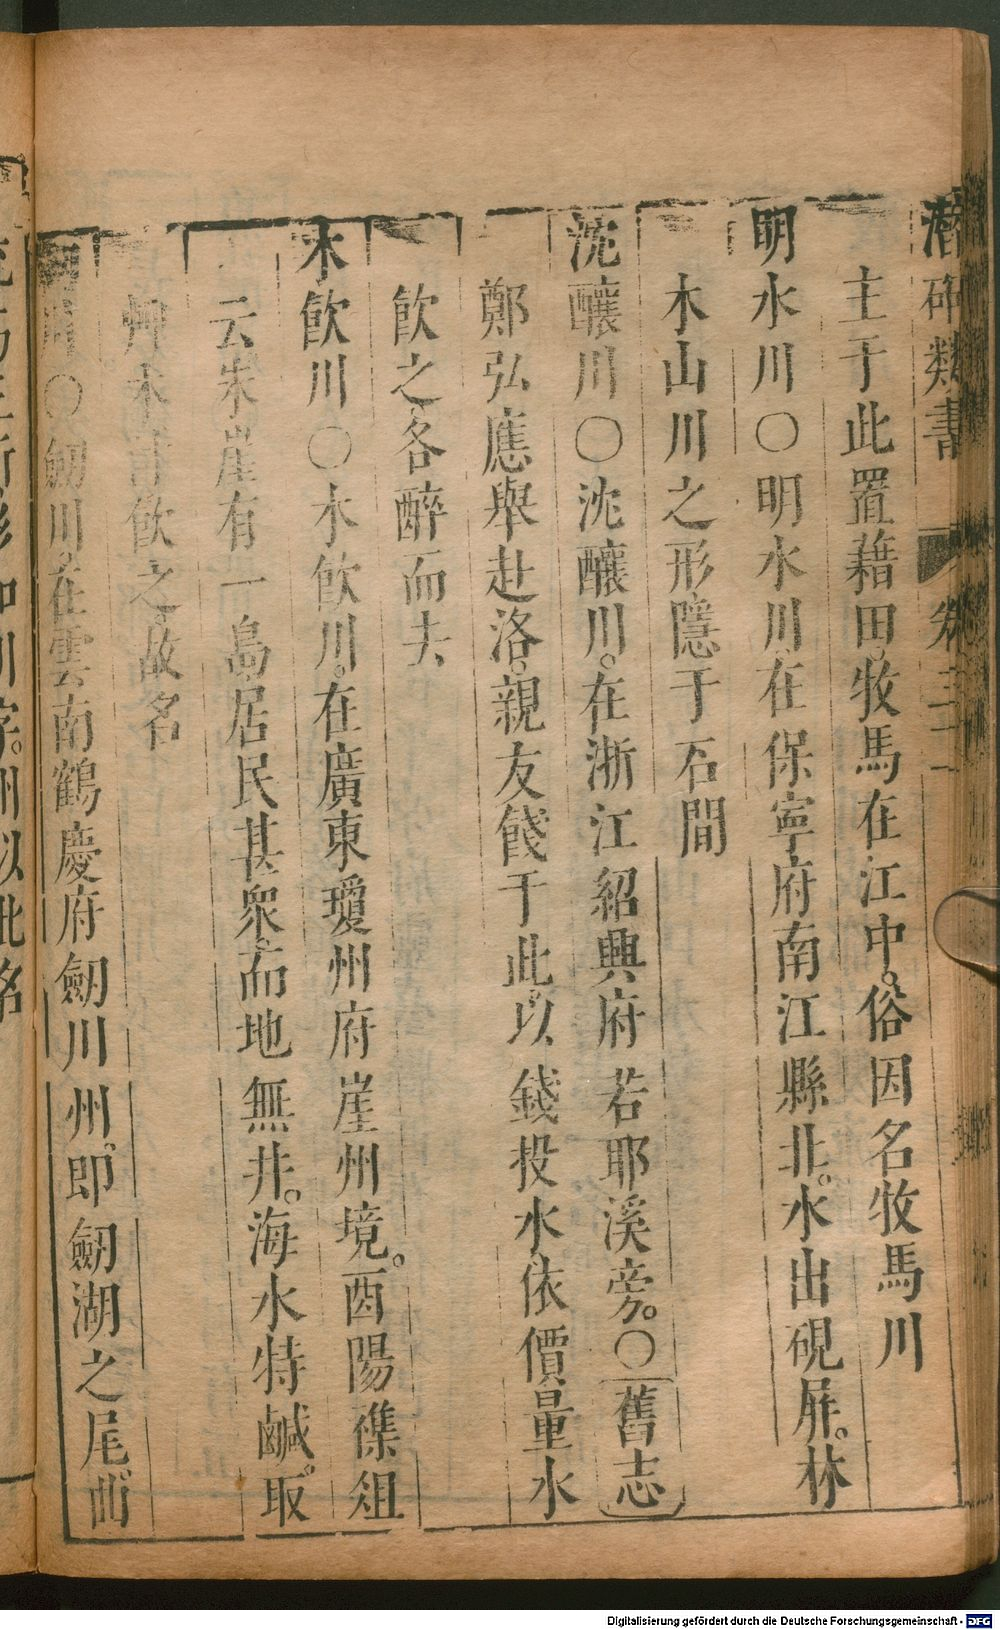 潛确類書 卷三十一
主于此置藉田。牧馬在江中。俗因名牧馬川
明水川〇明水川在保寧府南江縣北。水出硯屏。林
木山川之形隱于石間
沈釀川〇沈釀川。在浙江紹興府若耶溪旁。〇舊志
鄭弘應舉赴洛。親友餞于此。以錢投水。依價量水
飲之各醉而去
木飲川〇木飲川。在廣東瓊州府崖州境。酉陽襍俎
云朱崖有一島。居民甚衆。而地無井。海水特鹹。取
艸木汁飲之。故名
劒川〇劒川。在雲南鶴慶府劒川州。即劒湖之尾。曲
三折形如川字。州以此名
Digitalisierung gefördert durch die Deutsche Forschungsgemeinschaft - DFG